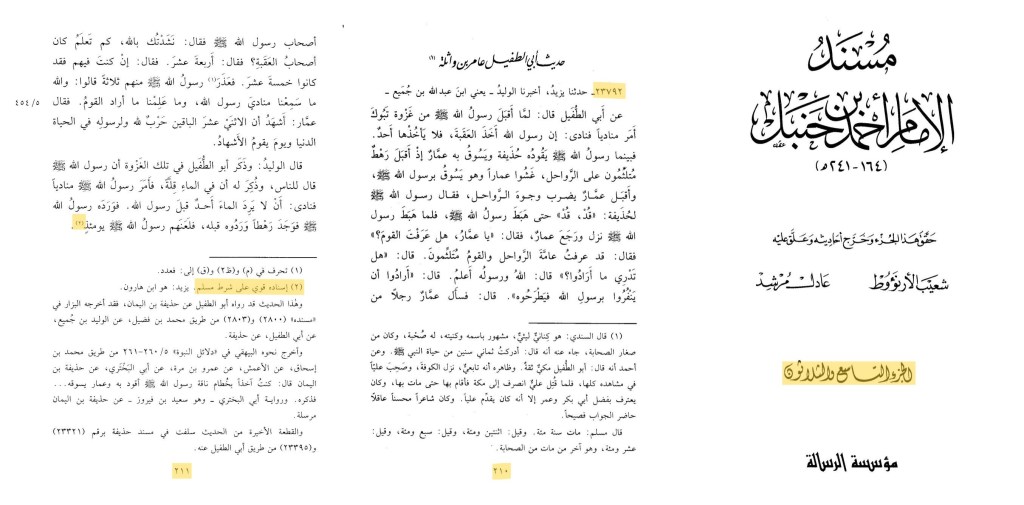 مسند
الإمام أحمد بن حنبل
(١٦٤-٢٤١هـ)
حقق هذا الجزء وخرج أحاديثه وعلق عليه
شعيب الأرنؤوط عادل مرشد
الجزء التاسع والثلاثون
مؤسسة الرسالة
حديث أبي الطفيل عامر بن واثلة (١)
٢٣٧٩٢ـ حدثنا يزيدُ، أخبرنا الوليدُ ـ يعني ابنَ عبدالله بن جُمَيع ـ
عن أبي الطُّفَيل قال: لمَّا أَقبَلَ رسولُ الله ﷺ من غَزْوة تَبُوكَ
أَمَر منادياً فنادى: إن رسول الله أَخَذَ العَقَبةَ، فلا يَأخُذْها أحدٌ.
فبينما رسولُ الله ﷺ يَقُودُه حُذيفة ويَسُوقُ به عمارٌ إذْ أَقبَلَ رَهْطٌ
مُتلثِّمُون على الرَّواحل، غَشُوا عماراً وهو يَسُوقُ برسولِ الله ﷺ،
وأقبَل عمَّارٌ يضرب وجوهَ الرَّواحل، فقال رسول الله ﷺ
لحُذيفة: «قُدْ، قُدْ» حتى هَبَطَ رسولُ الله ﷺ، فلما هَبَطَ رسول
الله ﷺ نزل ورَجَعَ عمارٌ، فقال: «يا عمارُ، هل عَرَفْتَ القومَ؟»
فقال: قد عرفتُ عامَّةَ الرَّواحل والقومُ مُتلثِّمون. قال: «هل
تَدْري ما أرَادُوا؟» قال: اللهُ ورسولُه أعلمُ. قال: «أرَادُوا أن
يَنْفِرُوا برسولِ الله فيَطْرَحُوه». قال: فسأَل عمَّارٌ رجلًا من
(١) قال السندي: هو كِنانيٌّ ليثيٌّ، مشهور باسمه وكنيته، له صُحْبة، وكان من
صغار الصحابة، جاء عنه أنه قال: أدركتُ ثماني سنين من حياة النبي ﷺ. وعن
أحمد أنه قال: أبو الطُّفيل مكيٌّ ثقةٌ. وظاهره أنه تابعيٌّ، نزل الكوفة، وصَحِبَ عليّاً
في مشاهده كلها، فلما قُتِل عليٌّ انصرف إلى مكة فأقام بها حتى مات بها، وكان
يعترف بفضل أبي بكر وعمر إلا أنه كان يقدِّم علياً. وكان شاعراً محسناً عاقلًا
حاضر الجواب فصيحاً.
قال مسلم: مات سنة مئة. وقيل: اثنتين ومئة، وقيل: سبع ومئة، وقيل:
عشر ومئة، وهو آخر من مات من الصحابة.
٢١٠
أصحاب رسول الله ﷺ فقال: نَشَدْتُك بالله، كم تَعلَمُ كان
أصحابُ العَقَبةِ؟ فقال: أربعةَ عشرَ. فقال: إنْ كنتَ فيهم فقد
كانوا خمسة عشرَ. فعَذَرَ(١) رسولُ الله ﷺ منهم ثلاثةً قالوا: والله
ما سَمِعْنا مناديَ رسول الله، وما عَلِمْنا ما أراد القومُ. فقال
٤٥٤/٥
عمارٌ: أشهَدُ أن الاثنَيْ عشرَ الباقين حَرْبٌ لله ولرسولِه في الحياة
الدنيا ويومَ يقومُ الأَشهادُ.
قال الوليدُ: وذَكَر أبو الطُّفَيل في تلك الغَزْوة أن رسول الله ﷺ
قال للناس، وذُكِرَ له أن في الماءِ قِلَّةً، فأَمَرَ رسولُ الله ﷺ منادياً
فنادى: أنْ لا يَرِدَ الماءَ أحدٌ قبلَ رسول الله. فوَرَدَه رسولُ الله
ﷺ فوَجَدَ رَهْطاً وَرَدُوه قبلَه، فلَعَنَهم رسولُ الله ﷺ يومئذٍ(٢).
(١) تحرف في (م) و(ظ٢) و(ق) إلى: فعدد.
(٢) إسناده قوي على شرط مسلم. يزيد: هو ابن هارون.
وهٰذا الحديث قد رواه أبو الطفيل عن حذيفة بن اليمان، فقد أخرجه البزار في
«مسنده» (٢٨٠٠) و(٢٨٠٣) من طريق محمد بن فضيل، عن الوليد بن جُميع،
عن أبي الطفيل، عن حذيفة.
وأخرج نحوه البيهقي في «دلائل النبوة» ٢٦٠/٥-٢٦١ من طريق محمد بن
إسحاق، عن الأعمش، عن عمرو بن مرة، عن أبي البَخْتَري، عن حذيفة بن
اليمان قال: كنتُ آخذاً بخُطام ناقة رسول الله ﷺ أقود به وعمار يسوقه...
فذكره. ورواية أبي البختري ـ وهو سعيد بن فيروز ـ عن حذيفة بن اليمان
مرسلة.
والقطعة الأخيرة من الحديث سلفت في مسند حذيفة برقم (٢٣٣٢١)
و(٢٣٣٩٥) من طريق أبي الطفيل عنه.
٢١١